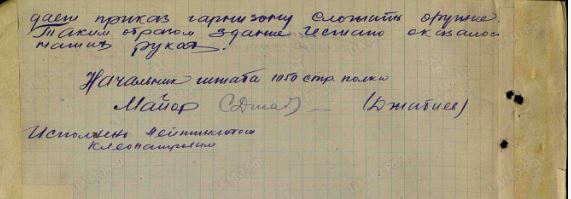 даёт приказ гарнизону сложить оружие
Таким образом здание Гестапо оказалось
наших руках.
Начальник штаба 1050 стр. полка
Майор (Джатиев)
Исполнено